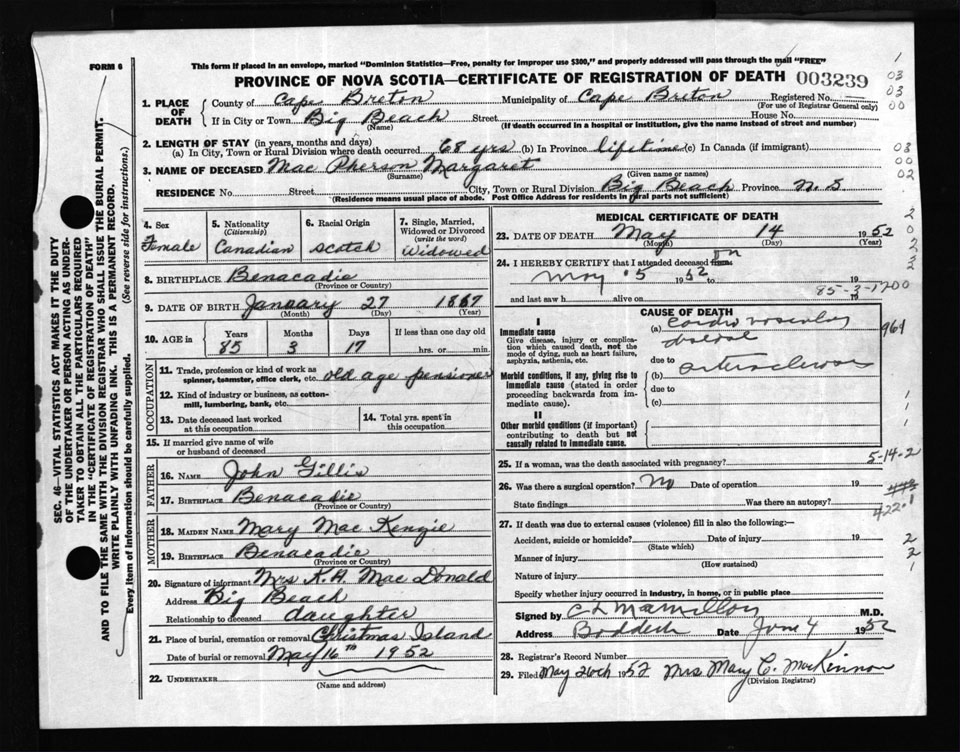 FORM 6
This form if placed in an envelope, marked "Dominion Statistics—Free, penalty for improper use $300," and properly addressed will pass through the mail "FREE"
PROVINCE OF NOVA SCOTIA—CERTIFICATE OF REGISTRATION OF DEATH 003239
1. PLACE OF DEATH
County of Cape Breton Municipality of Cape Breton Registered No.
(For use of Registrar General only)
If in City or Town Big Beach Street House No.
(Name) (If death occurred in a hospital or institution, give the name instead of street and number)
2. LENGTH OF STAY (in years, months and days)
(a) In City, Town or Rural Division where death occurred 68 yrs (b) In Province lifetime (c) In Canada (if immigrant)
3. NAME OF DECEASED Mac Pherson Margaret
(Surname) (Given name or names)
RESIDENCE No. Street City, Town or Rural Division Big Beach Province N.S
(Residence means usual place of abode. Post Office Address for residents in rural parts not sufficient)
4. Sex
Female
5. Nationality
(Citizenship)
Canadian
6. Racial Origin
Scotch
7. Single, Married, Widowed or Divorced
(write the word)
Widowed
8. BIRTHPLACE Benacadie
(Province or Country)
9. DATE OF BIRTH January 27 1867
(Month) (Day) (Year)
10. AGE in
Years Months Days If less than one day old
85 3 17 hrs. or min.
OCCUPATION
11. Trade, profession or kind of work as
spinner, teamster, office clerk, etc. old age pensioner
12. Kind of industry or business, as cotton-
mill, lumbering, bank, etc.
13. Date deceased last worked
at this occupation
14. Total yrs. spent in
this occupation
15. If married give name of wife
or husband of deceased
FATHER
16. NAME John Gillis
17. BIRTHPLACE Benacadie
(Province or Country)
MOTHER
18. MAIDEN NAME Mary Mac Kenzie
19. BIRTHPLACE Benacadie
(Province or Country)
20. Signature of informant Mrs K.A. Mac Donald
Address Big Beach
Relationship to deceased daughter
21. Place of burial, cremation or removal Christmas Island
Date of burial or removal May 16th 1952
22. UNDERTAKER
(Name and address)
MEDICAL CERTIFICATE OF DEATH
23. DATE OF DEATH May 14 1952
(Month) (Day) (Year)
24. I HEREBY CERTIFY that I attended deceased on
May 5 1952 to 19
85-3-1200
and last saw h alive on 19
CAUSE OF DEATH
I
Immediate cause
Give disease, injury or complica-
tion which caused death, not the
mode of dying, such as heart failure,
asphyxia, asthenia, etc.
(a)
disease
due to
Morbid conditions, if any, giving rise to
immediate cause (stated in order
proceeding backwards from im-
mediate cause).
(b)
due to
(c)
II
Other morbid conditions (if important)
contributing to death but not
causally related to immediate cause.
25. If a woman, was the death associated with pregnancy? 5-14-2
26. Was there a surgical operation? No Date of operation 19
State findings Was there an autopsy?
422.1
27. If death was due to external causes (violence) fill in also the following:—
Accident, suicide or homicide? Date of injury 19
(State which)
Manner of injury
(How sustained)
Nature of injury
Specify whether injury occurred in industry, in home, or in public place
Signed by M.D.
Address Date June 4 1952
28. Registrar's Record Number
29. Filed May 26th 1952 Mrs Mary C. MacKinnon
(Division Registrar)
SEC. 46—VITAL STATISTICS ACT MAKES IT THE DUTY
OF THE UNDERTAKER OR PERSON ACTING AS UNDER-
TAKER TO OBTAIN ALL THE PARTICULARS REQUIRED
IN THE "CERTIFICATE OF REGISTRATION OF DEATH"
AND TO FILE THE SAME WITH THE DIVISION REGISTRAR WHO SHALL ISSUE THE BURIAL PERMIT.
WRITE PLAINLY WITH UNFADING INK. THIS IS A PERMANENT RECORD.
Every item of information should be carefully supplied. (See reverse side for instructions.)